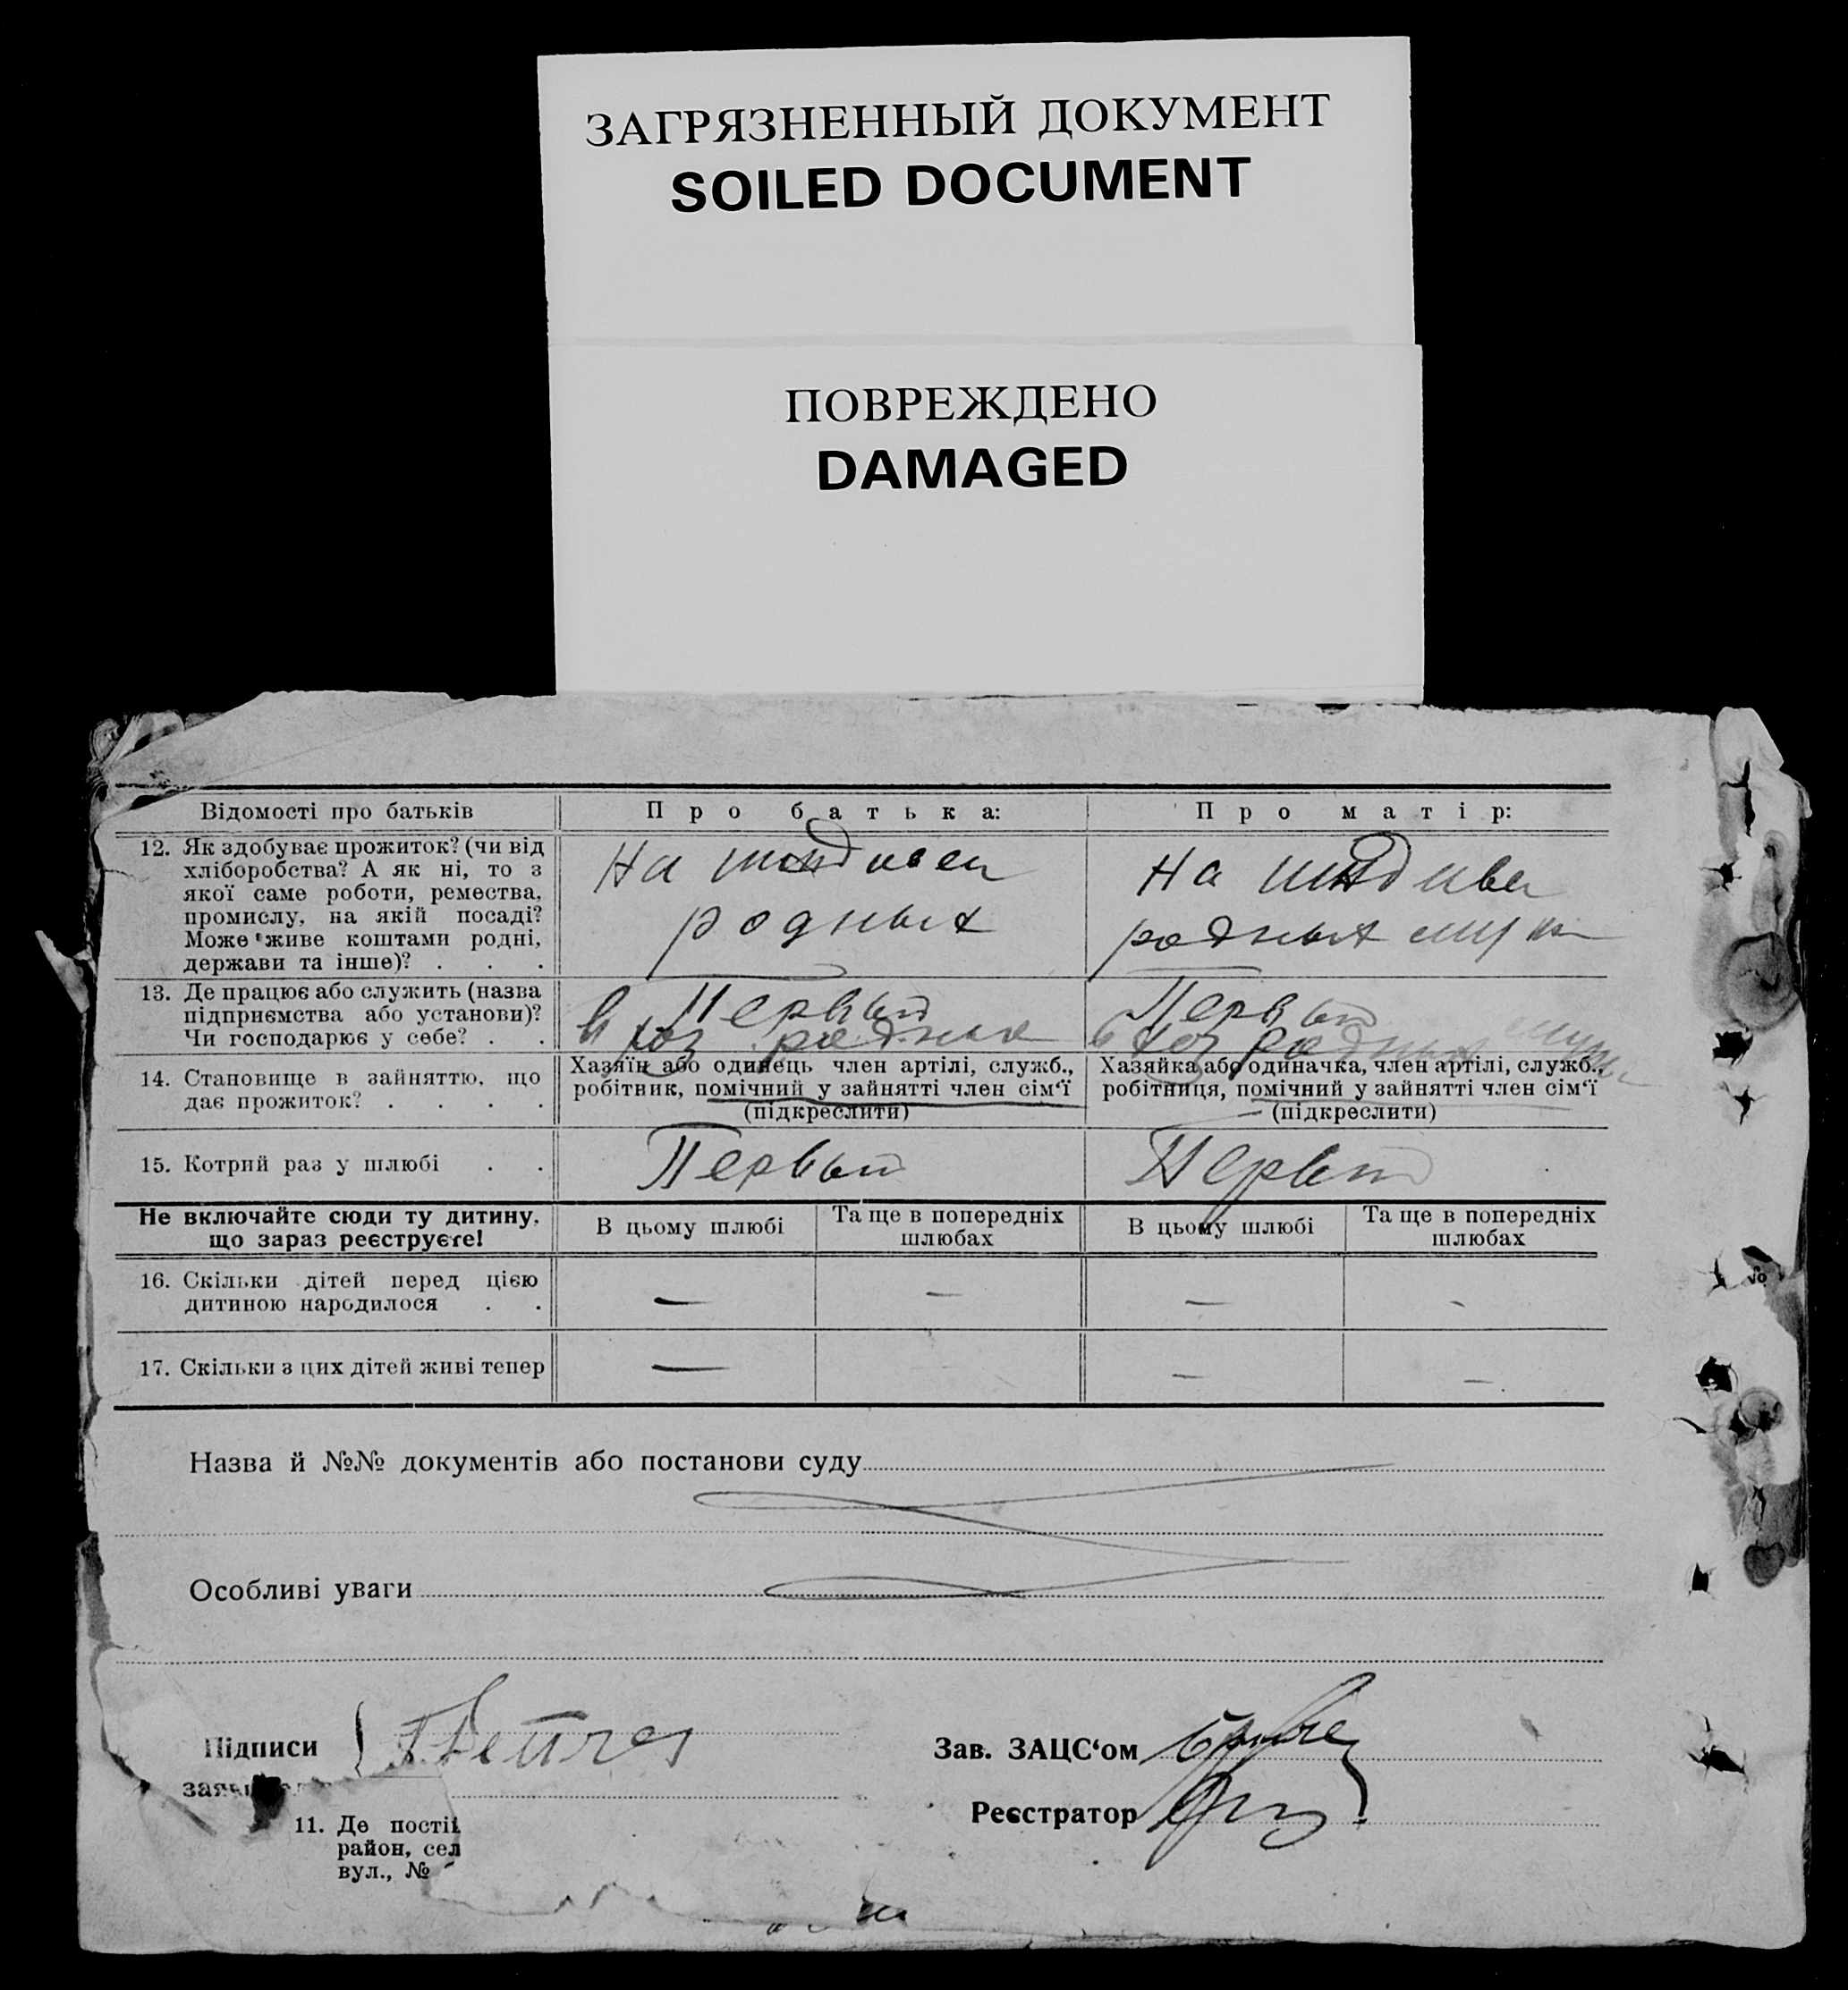 ЗАГРЯЗНЕННЫЙ ДОКУМЕНТ
SOILED DOCUMENT
ПОВРЕЖДЕНО
DAMAGED
Відомості про батьків
Про батька:
Про матір:
12. Як здобуває прожиток? (чи від
хліборобства? А як ні, то з
якої саме роботи, ремества,
промислу, на якій посаді?
Може живе коштами родні,
держави та інше)? . . .
На иждивен
родных
На иждиве
родных мужа
13. Де працює або служить (назва
підприємства або установи)?
Чи господарює у себе? . .
Первый
в хоз родных
Первый
в хоз родных мужа
14. Становище в зайняттю, що
дає прожиток? . . . .
Хазяїн або одинець член артілі, служб.,
робітник, помічний у зайнятті член сім‘ї
(підкреслити)
Хазяйка або одиначка, член артілі, служб.,
робітниця, помічний у зайнятті член сім‘ї
(підкреслити)
15. Котрий раз у шлюбі . .
Первый
Первый
Не включайте сюди ту дитину,
що зараз реєструєте!
В цьому шлюбі
Та ще в попередніх
шлюбах
В цьому шлюбі
Та ще в попередніх
шлюбах
16. Скільки дітей перед цією
дитиною народилося . .
— — — -
17. Скільки з цих дітей живі тепер
— — —
Назва й №№ документів або постанови суду
Особливі уваги
Підписи
Зав. ЗАЦС‘ом
Реєстратор
11. Де
район, сел
вул., №